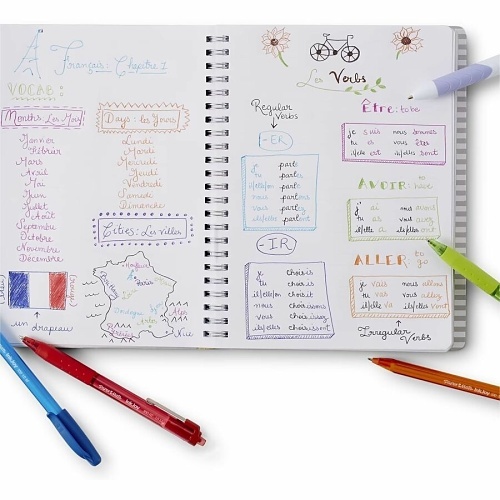 Français: Chapitre 1
VOCAB:
Months: Les Mois
Janvier
Février
Mars
Avril
Mai
Juin
Juillet
Août
Septembre
Octobre
Novembre
Décembre
un drapeau
Days: les Jours
Lundi
Mardi
Mercredi
Jeudi
Vendredi
Samedi
Dimanche
Cities: Les Villes
Paris
Nice
Les Verbs
Regular
Verbs
-ER
je parle
tu parles
il/elle/on parle
nous
vous parlez
ils/elles parlent
-IR
je choisis
tu choisis
il/elle/on choisit
nous choisissons
vous choisissez
ils/elles choisissent
Être: to be
je suis nous sommes
tu es vous êtes
il/elle est ils/elles sont
AVOIR: to have
j' ai nous avons
tu as vous avez
il/elle a ils/elles ont
ALLER: to go
je vais nous allons
tu vas vous allez
il/elle va ils/elles vont
Irregular
Verbs
PaperMate InkJoy
PaperMate InkJoy
PaperMate InkJoy